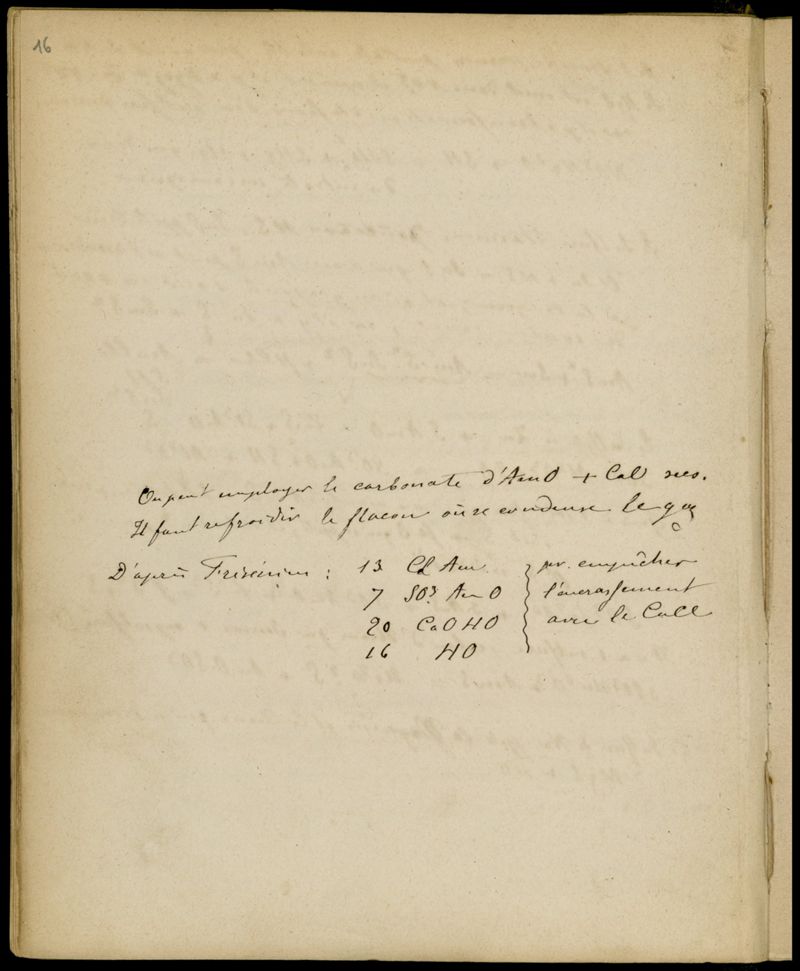 16
On peut employer le carbonate d'AmO + CaO secs.
Il faut refroidir le flacon où se condense le gaz
D'après Frésénius : 13 Cl Am. pr. empêcher
7 SO3. Am O l'encrassement
20 CaO HO avec le CaCl
16 HO